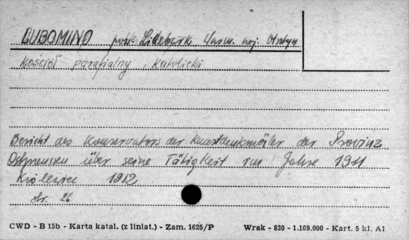 BUBOMINO pow. Lidzbark Warm. woj. Olsztyn
Kościół parafialny, katolicki
Bericht des Konservators der Kunstdenkmäler der Provinz
Ostpreussen über seine Tätigkeit im Jahre 1911
Królewiec 1912
str. 26
CWD - B 15b - Karta katal. (z liniat.) - Zam. 1625/P Wrak - 830 - 1.169.000 - Kart. 5 kl. A1